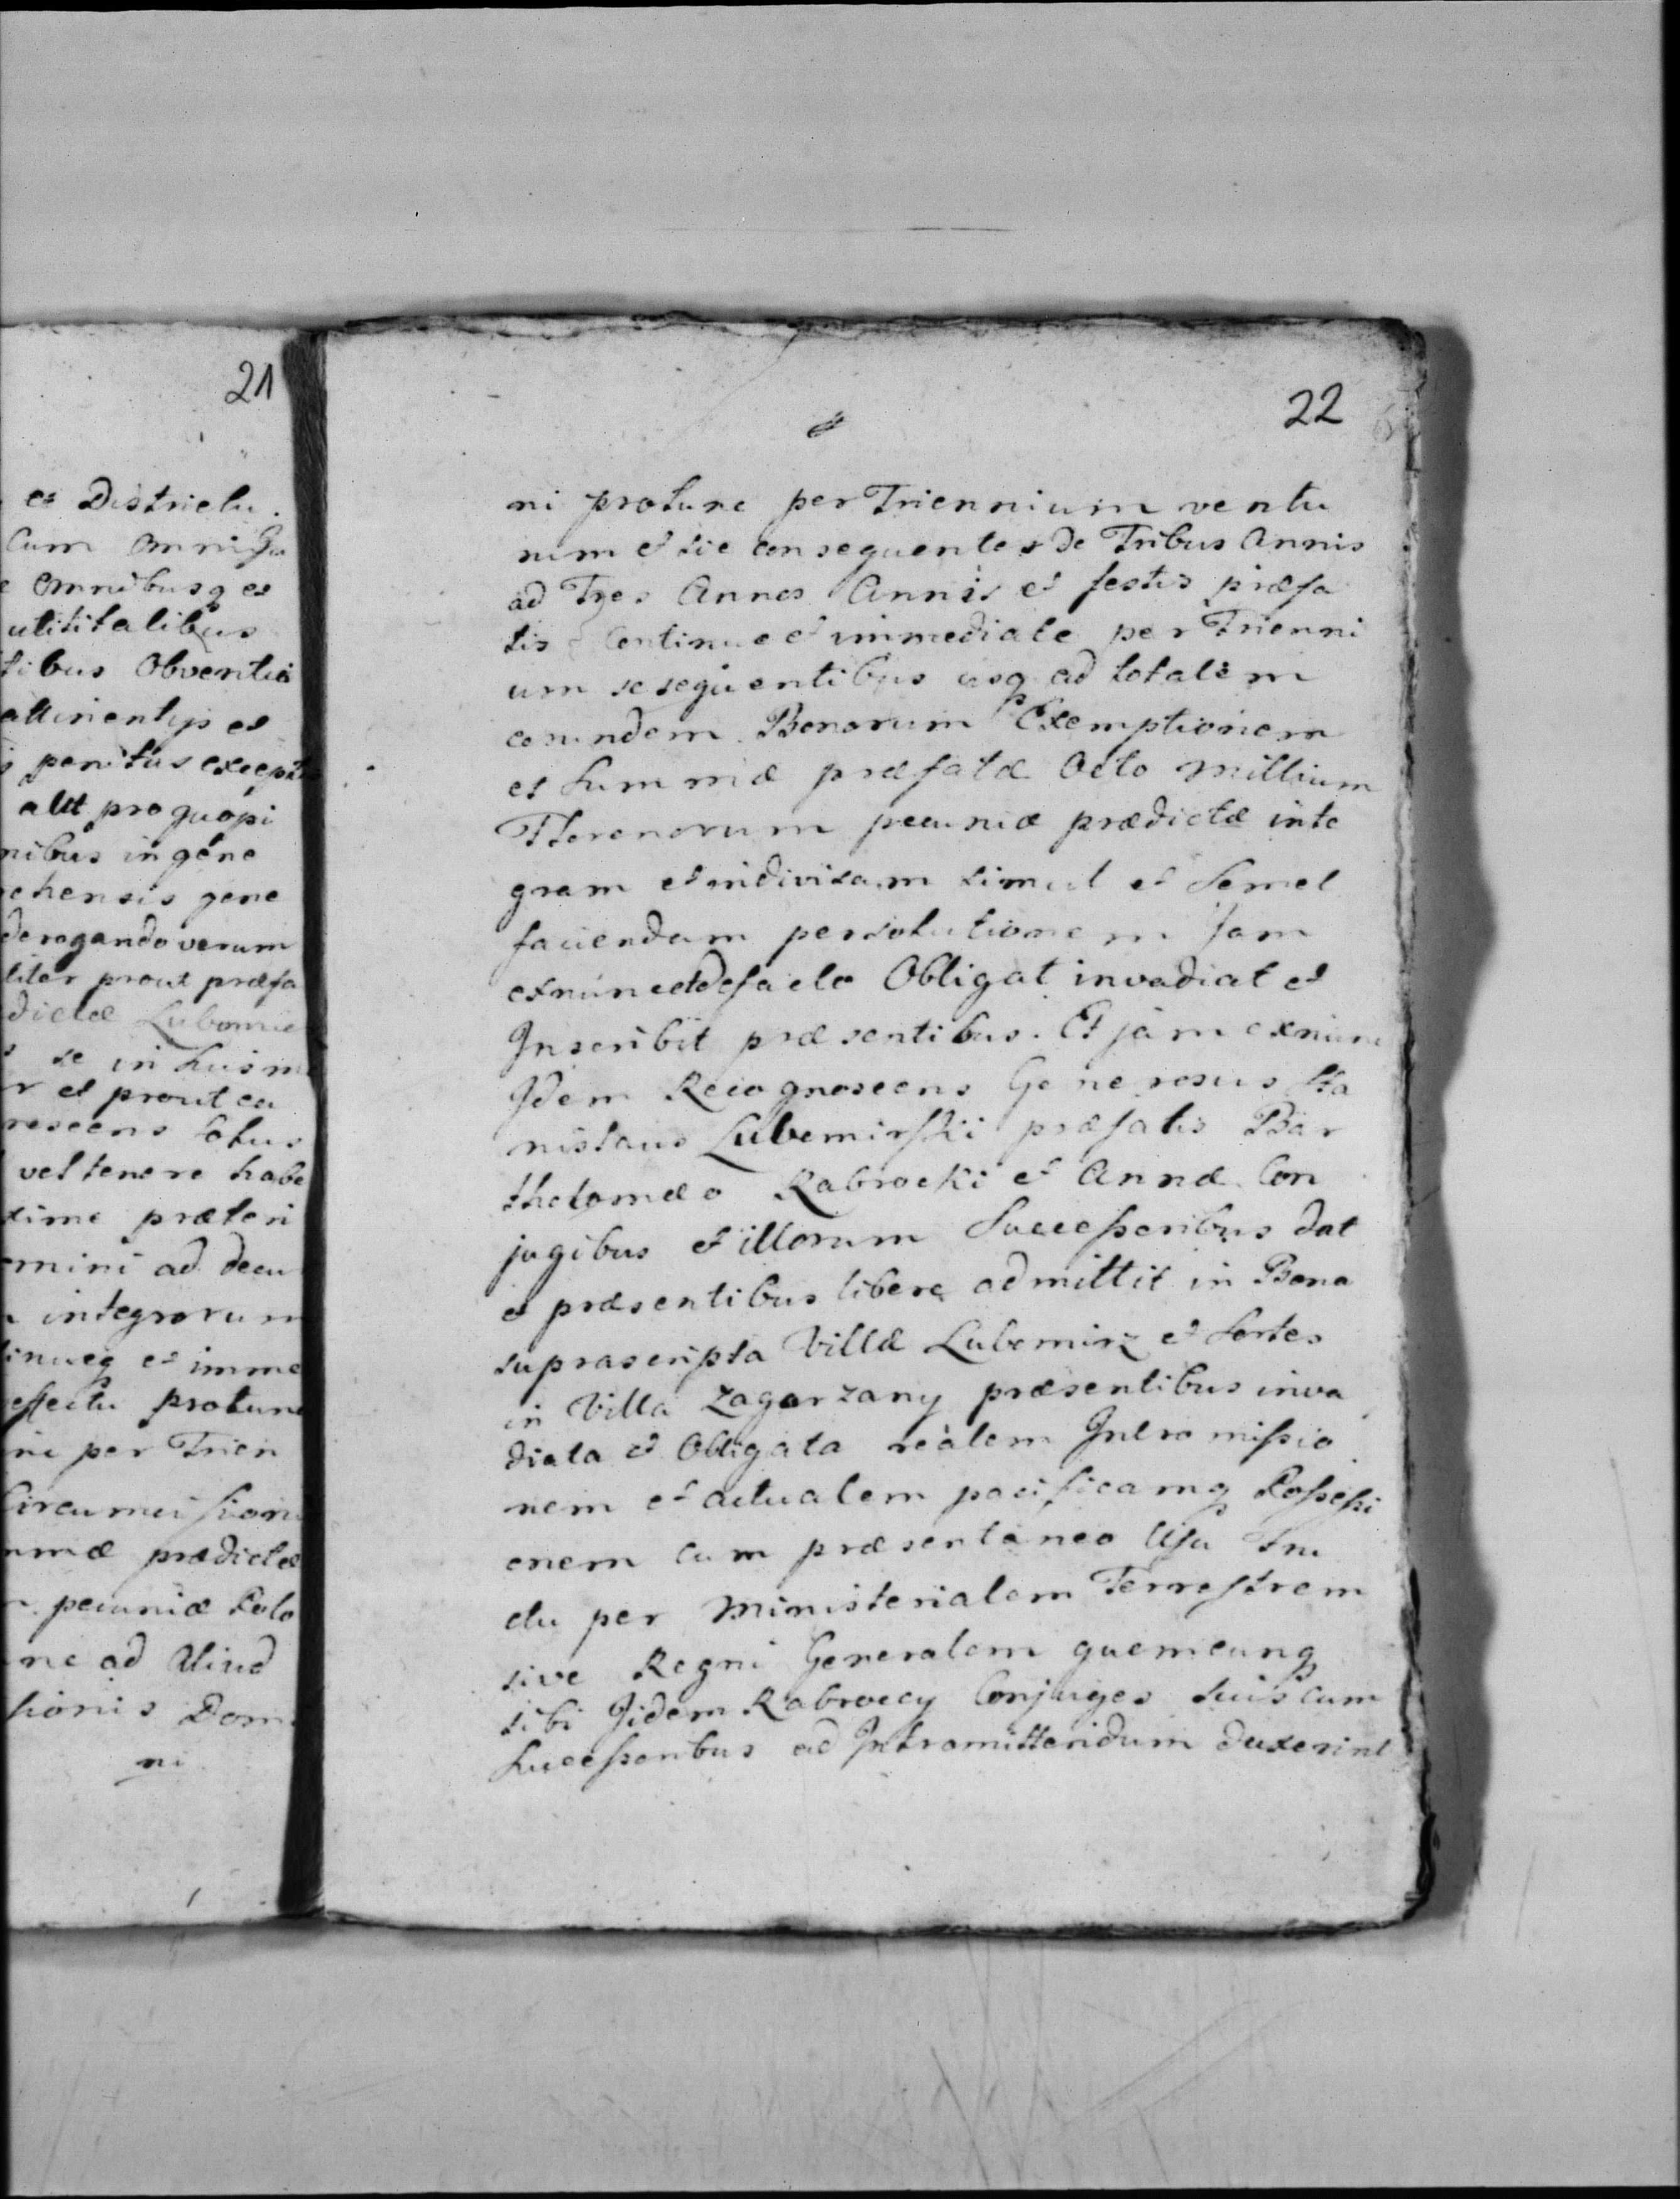 21
es Districtu.
Cum Omni Ju
omnibusq es
utilitalibus
tibus Obventio
attinentijs et
penitus exceptis
alit pro quopi
nibus in gene
ehensis gene
derogando verum
liter prout præfa
dictæ Lubomie
se in huism
r et prout ea
rescens totus
vel tenere habe
xime præteri
mini ad decu
integrorum
tinueq et imme
effectu protunc
ini per Trien
Circumcisioni
mmæ prædictæ
pecuniæ Polo
ne ad Aliud
sionis Domi
ni
22
ni protunc per Triennium ventu
rum et sic consequenter de Tribus Annis
ad Tres Annos Annis et festis præfa
tis Continue et immediate per Trienni
um se sequentibus usq ad totalem
eorundem Bonorum Exemptionem
et Summæ præfatæ Octo Millium
Florenorum pecuniæ prædictæ inte
gram et indivisam simul et Semel
faciendam persolutionem Jam
exnunc et defacto Obligat invadiat et
Inscribit præsentibus. Et jam exnunc
Idem Recognoscens Generosus Sta
nislaus Lubomirski præfatis Bar
tholomæo Rabrocki et Annæ Con
jugibus et illorum Successoribus dat
et præsentibus libere admittit in Bona
suprascripta Villæ Lubomirz et Sortes
in Villa Zagorzany præsentibus inva
diata et Obligata realem Intromissio
nem et actualem pacificamq Possessi
onem cum præsentaneo Usu fru
ctu per Ministerialem Terrestrem
sive Regni Generalem quemcunq
sibi Iidem Rabroccy Conjuges suis cum
Successoribus ad Intromittendum duxerint